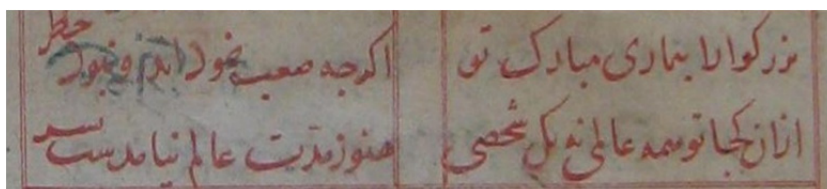 بزرکوارا بیماری مبارک تو اکرجه صعب نمود اندرو نبود خطر
ازان کجا تو همه عالمی نه یک شخصی هنوز مدت عالم نیامدست بسر